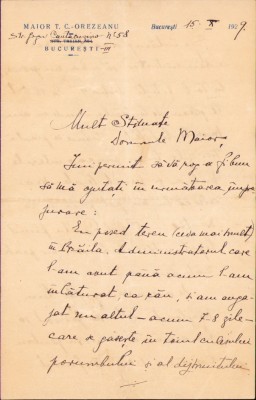 MAIOR T. C. OREZEANU
Str. Cantacuzino N° 58
BUCUREȘTI-III
București 15-X 1929.
Mult Stimate
Domnule Maior,
Îmi permit să vă rog a fi bun
să mă ajutați în următoarea împre
jurare:
Eu posed teren (ceva mai mult)
în Brăila. Administratorul care
l-am avut până acum l-am
înlăturat ca rău, și am anga-
jat un altul - acum 7-8 zile -
care se găsește în toiul culesului
porumbului și al